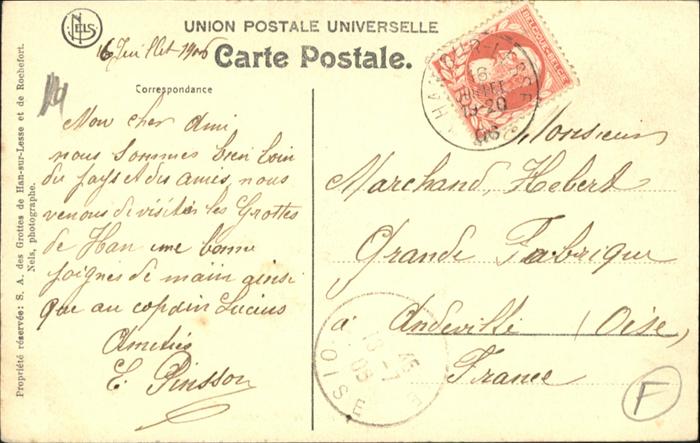 NELS
UNION POSTALE UNIVERSELLE
Carte Postale.
16 Juillet 1906
Correspondance
Mon cher Ami
nous sommes bien loin
du pays et des amis, nous
venons de visiter les Grottes
de Han une bonne
poignée de main ainsi
que au copain Lucius
Amitiés
E. Pinsson
BELGIQUE-BELGIË
HAN-SUR-LESSE
16
JUILLET
19-20
06
Monsieur
Marchand, Hebert
Grande Fabrique
à Andeville (Oise)
France
OISE
F
Propriété réservée: S. A. des Grottes de Han-sur-Lesse et de Rochefort.
Nels, photographe.